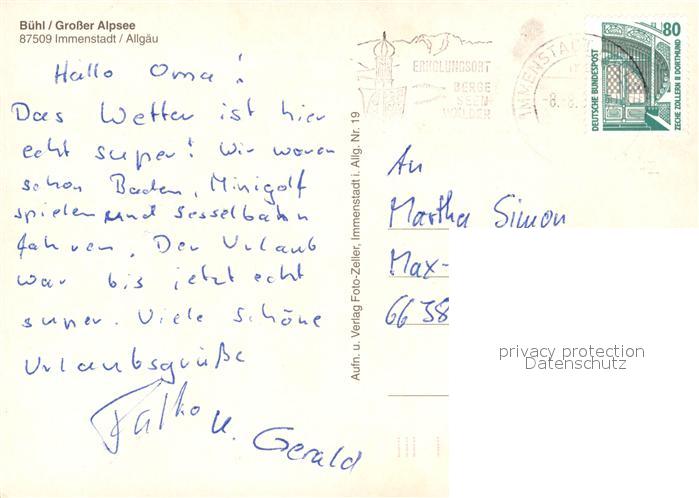 Bühl / Großer Alpsee
87509 Immenstadt / Allgäu
Hallo Oma!
Das Wetter ist hier
echt super! Wir waren
schon Baden, Minigolf
spielen und Sesselbahn
fahren. Der Urlaub
war bis jetzt echt
super. Viele schöne
Urlaubsgrüße
Falko u. Gerald
Aufn. u. Verlag Foto-Zeller, Immenstadt i. Allg. Nr. 19
ERHOLUNGSORT
BERGE
SEEN
WÄLDER
IMMENSTADT
-8.-8.
80
DEUTSCHE BUNDESPOST
ZECHE ZOLLERN II DORTMUND
An
Martha Simon
Max-
6638
privacy protection
Datenschutz